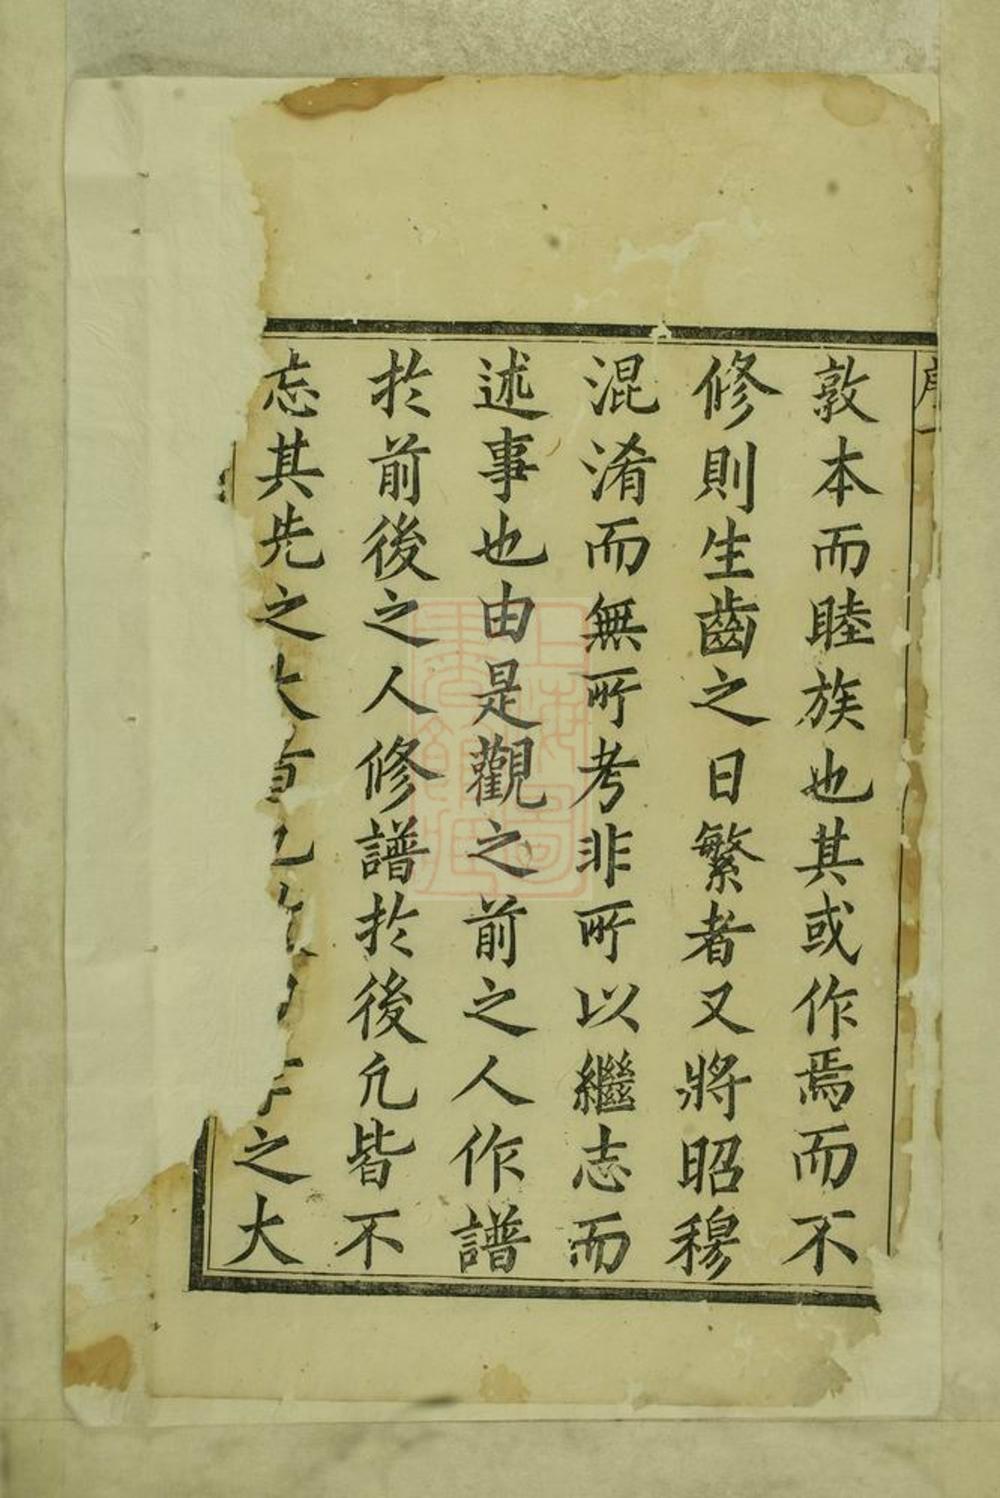 序一
敦本而睦族也其或作焉而不
修則生齒之日繁者又將昭穆
混淆而無所考非所以繼志而
述事也由是觀之前之人作譜
於前後之人修譜於後凢皆不
忘其先之大之大